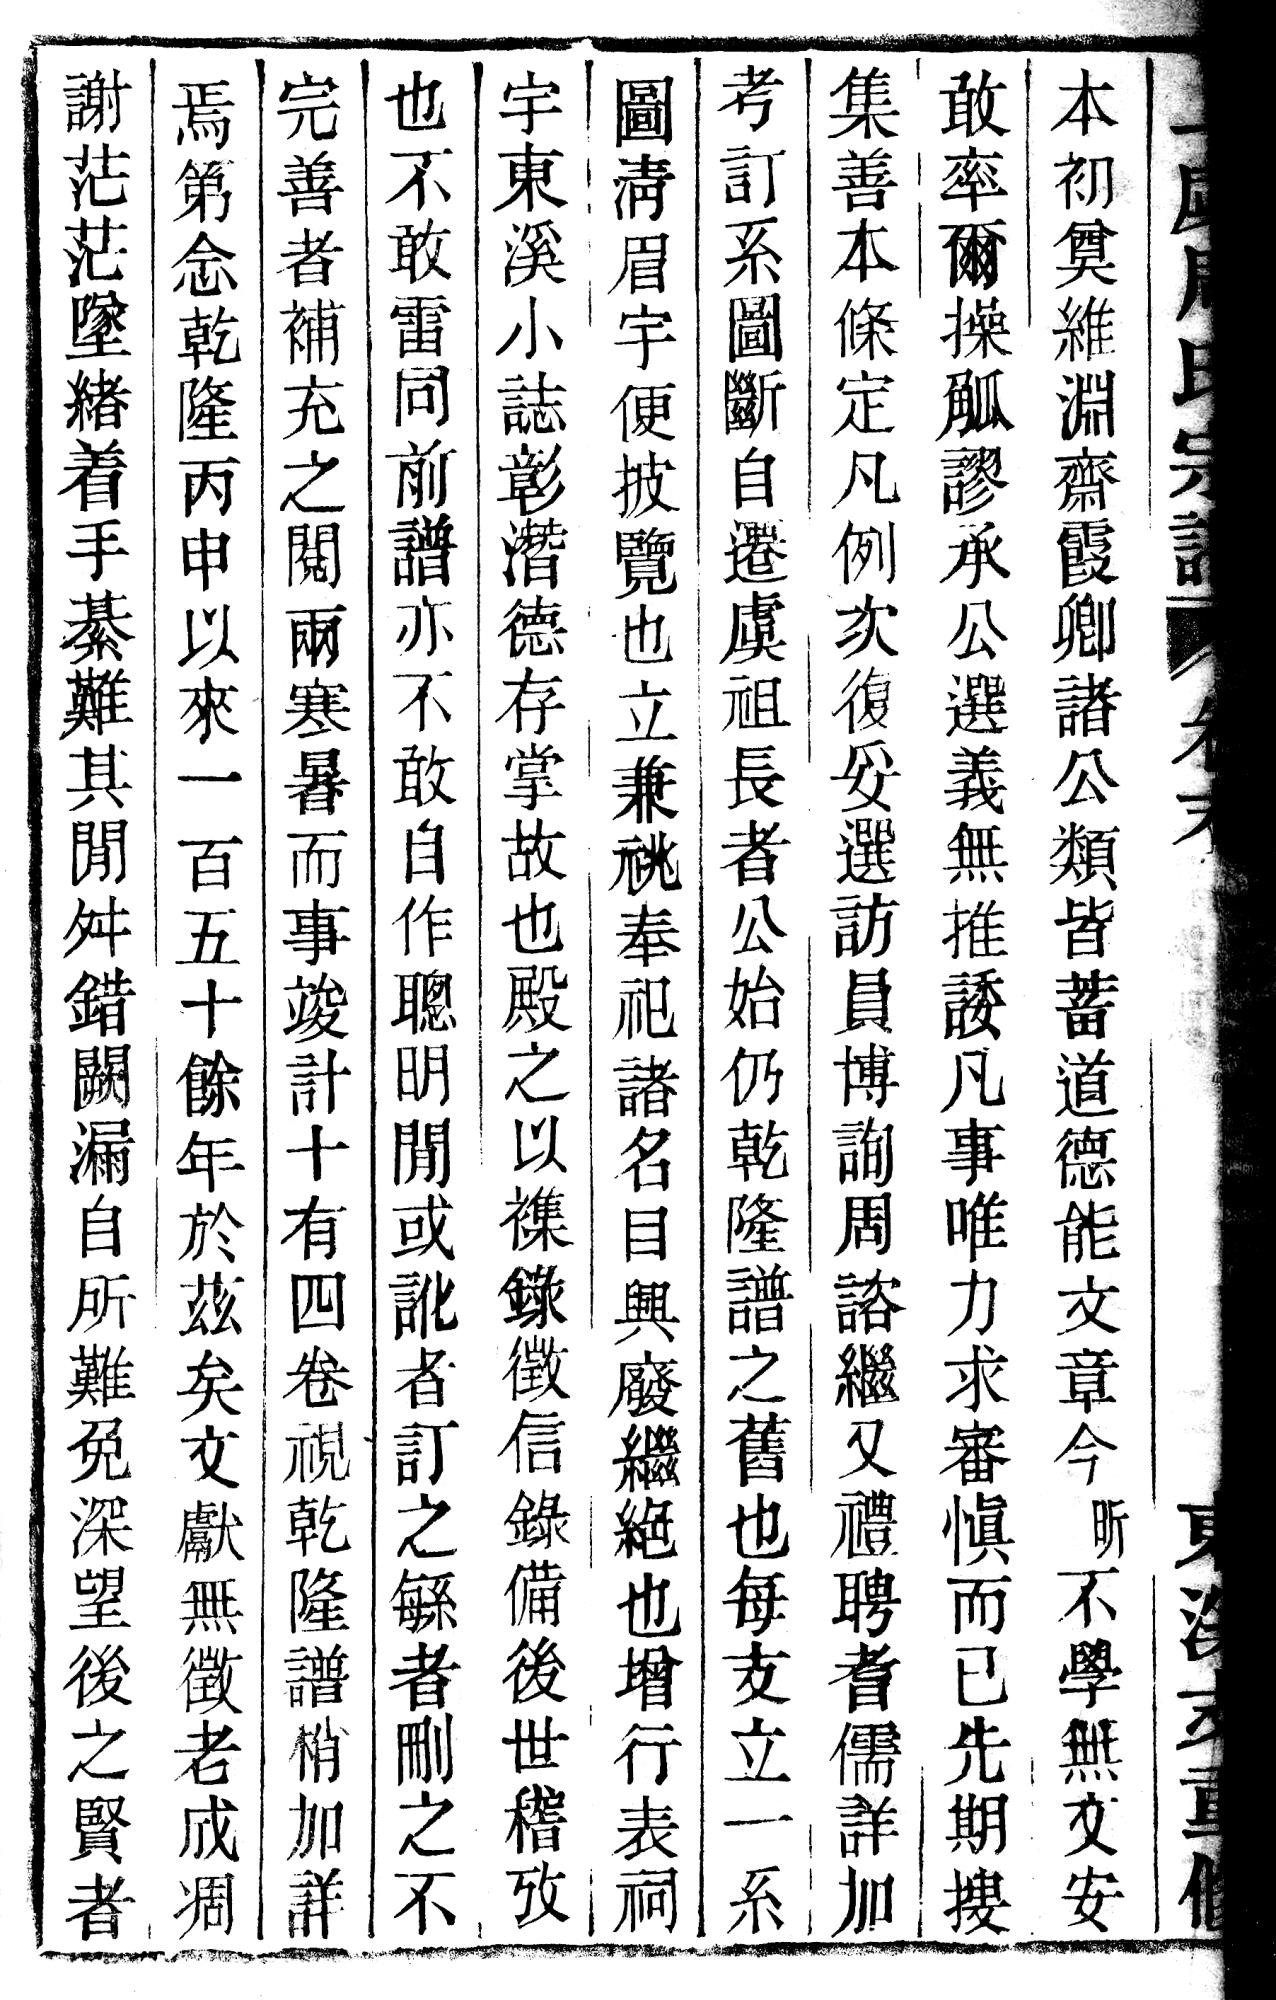 周氏宗譜
本初奠維淵齋霞卿諸公類皆蓄道德能文章今昕不學無文安
敢率爾操觚謬承公選義無推諉凡事唯力求審慎而已先期搜
集善本條定凡例次復妥選訪員博詢周諮繼又禮聘耆儒詳加
考訂系圖斷自遷虞祖長者公始仍乾隆譜之舊也每支立一系
圖淸眉宇便披覽也立兼祧奉祀諸名目興廢繼絕也增行表祠
宇東溪小誌彰潛德存掌故也殿之以襍錄徵信錄備後世稽攷
也不敢雷同前譜亦不敢自作聰明閒或訛者訂之緐者刪之不
完善者補充之閱兩寒暑而事竣計十有四卷視乾隆譜梢加詳
焉第念乾隆丙申以來一百五十餘年於茲矣文獻無徵老成凋
謝茫茫墜緒着手綦難其閒舛錯闕漏自所難免深望後之賢者